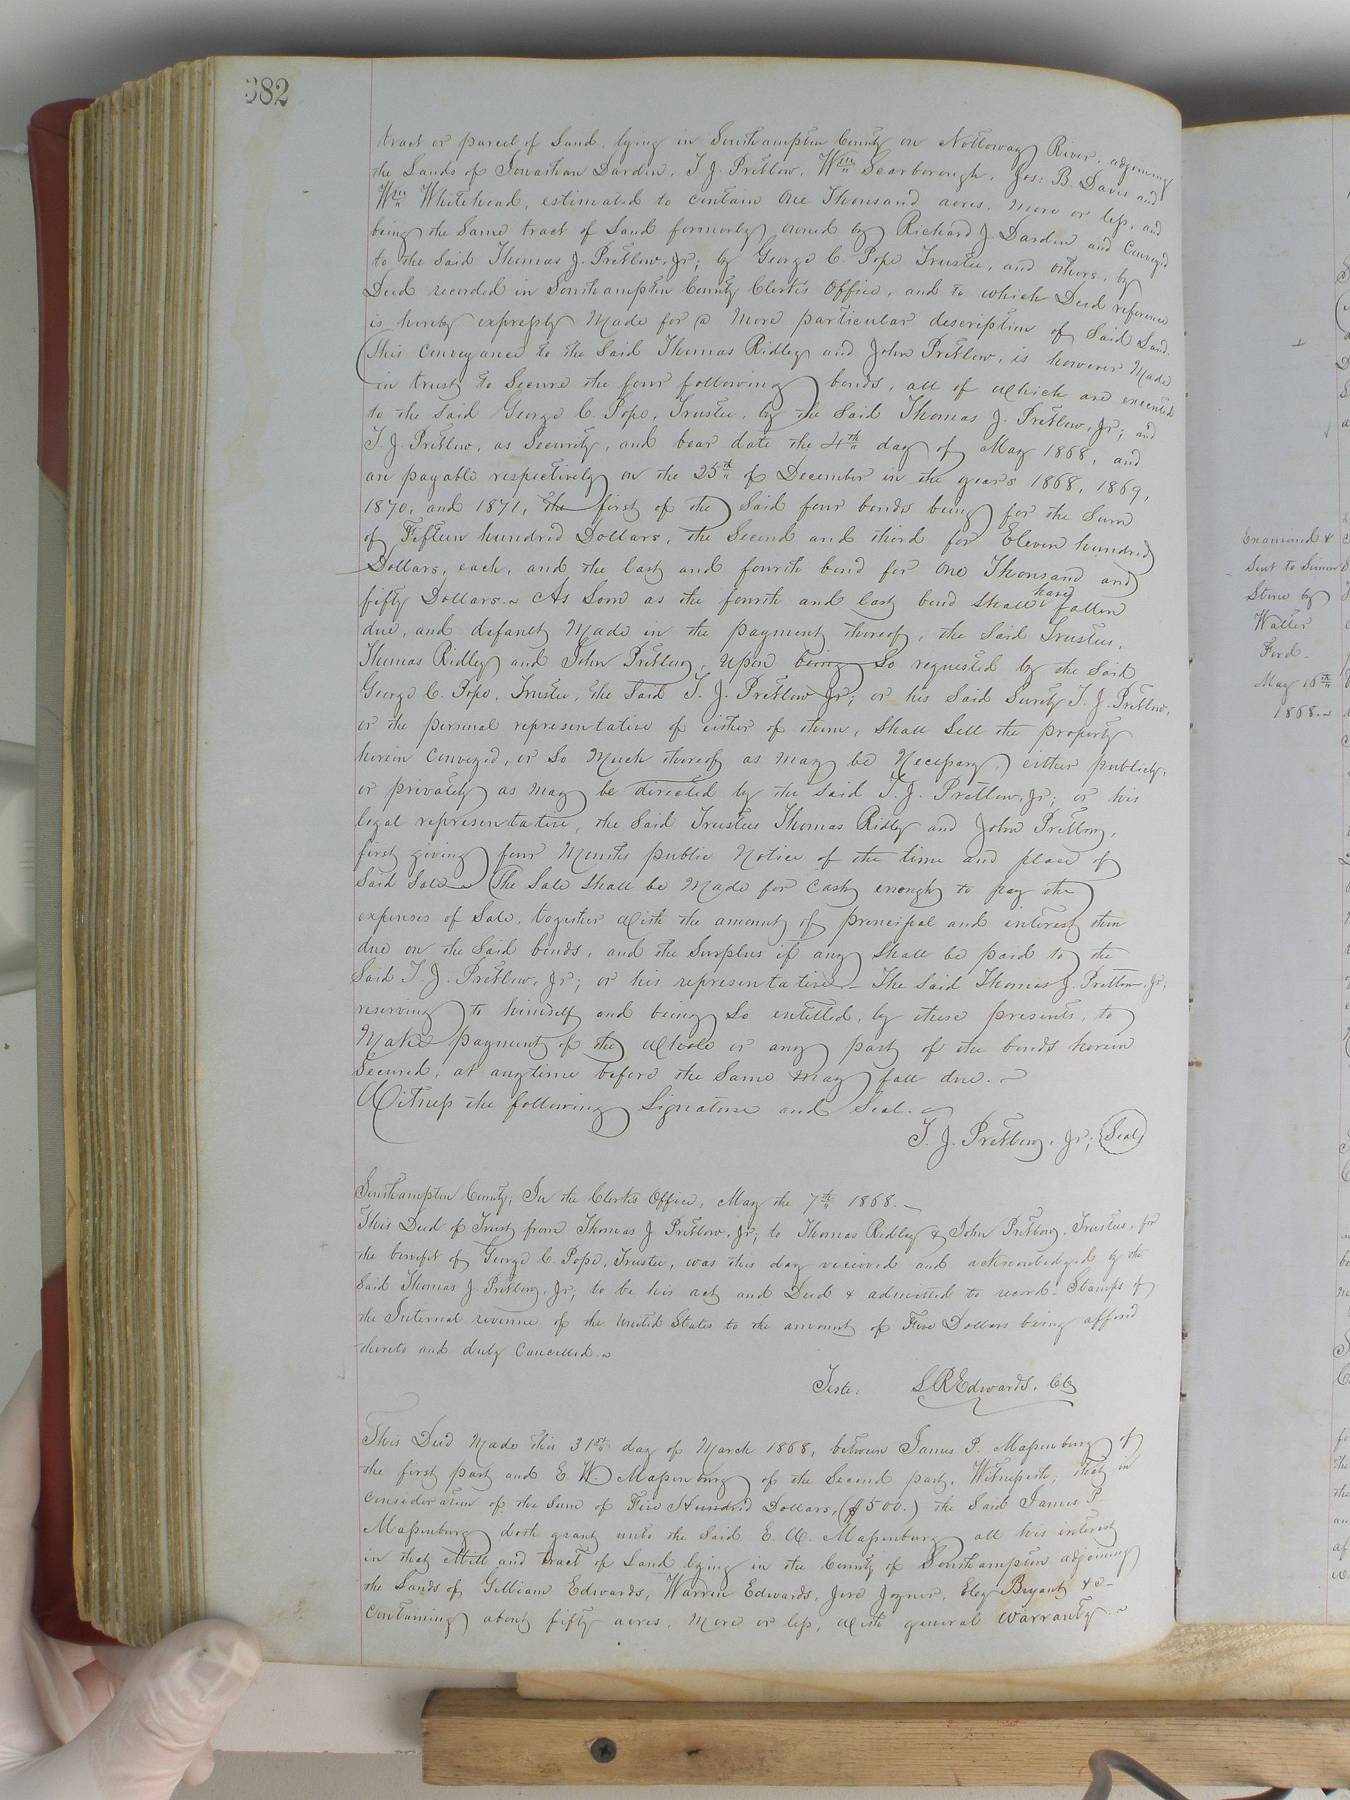 382
tract or parcel of Land, lying in Southampton County on Nottoway River, adjoining
the Lands of Jonathan Darden, T. J. Pretlow, Wm Scarborough, Jos: B. Davis and
Wm Whitehead, estimated to contain One Thousand acres, more or less, and
being the Same tract of Land formerly owned by Richard J. Darden and Conveyed
to the Said Thomas J. Pretlow, Jr; by George C. Pope Trustee, and others, by
Deed recorded in Southampton County Clerk's Office, and to which Deed reference
is hereby expressly Made for a More particular description of Said Land.
This conveyance to the Said Thomas Ridley and John Pretlow, is however Made
in trust to Secure the four following bonds, all of which are executed
to the Said George C. Pope, Trustee, by the Said Thomas J. Pretlow, Jr; and
T. J. Pretlow, as Security, and bear date the 4th day of May 1868, and
are payable respectively on the 25th of December in the years 1868, 1869,
1870, and 1871, the first of the Said four bonds being for the Sum
of Fifteen hundred Dollars, the Second and third for Eleven hundred
Dollars, each, and the last and fourth bond for One Thousand and
fifty Dollars. As Soon as the fourth and last bond Shall have fallen
due, and default Made in the payment thereof, the Said Trustees,
Thomas Ridley and John Pretlow, upon being So requested by the Said
George C. Pope, Trustee, the Said T. J. Pretlow Jr; or his Said Surety T. J. Pretlow,
or the personal representative of either of them, Shall Sell the property
herein conveyed, or So Much thereof as may be Necessary, either publicly,
or privately as may be directed by the Said T. J. Pretlow, Jr; or his
legal representative, the Said Trustees Thomas Ridley and John Pretlow,
first giving four Months public Notice of the time and place of
Said Sale. The Sale Shall be Made for Cash enough to pay the
expenses of Sale, together with the amount of principal and interest then
due on the Said bonds, and the Surplus if any Shall be paid to the
Said T. J. Pretlow, Jr; or his representative. The Said Thomas J. Pretlow, Jr;
reserving to himself and being So entitled, by these presents, to
Make payment of the whole or any part of the bonds herein
Secured, at anytime before the Same may fall due.
Witness the following Signature and Seal.
T. J. Pretlow, Jr; (Seal)
Southampton County; In the Clerk's Office, May the 7th 1868.
This Deed of Trust from Thomas J. Pretlow, Jr; to Thomas Ridley & John Pretlow, Trustees, for
the benefit of George C. Pope, Trustee, was this day received and acknowledged by the
Said Thomas J. Pretlow, Jr; to be his act and Deed & admitted to record. Stamps of
the Internal revenue of the United States to the amount of Five Dollars being affixed
thereto and duly Cancelled.
Teste. L R Edwards, Clk
This Deed Made this 31st day of March 1868, between James P. Massenburg of
the first part and E W. Massenburg of the Second part, Witnesseth, that in
consideration of the Sum of Five Hundred Dollars, ($500.) the Said James P
Massenburg doth grant unto the Said E. W. Massenburg all his interest
in that Mill and tract of Land lying in the County of Southampton adjoining
the Lands of Gilliam Edwards, Warren Edwards, Jere Joyner, Eley Bryant &c
Containing about fifty acres, More or less, With general Warranty.
Examined &
Sent to Simon
Stone by
Walter
Ford.
May 18th
1868.